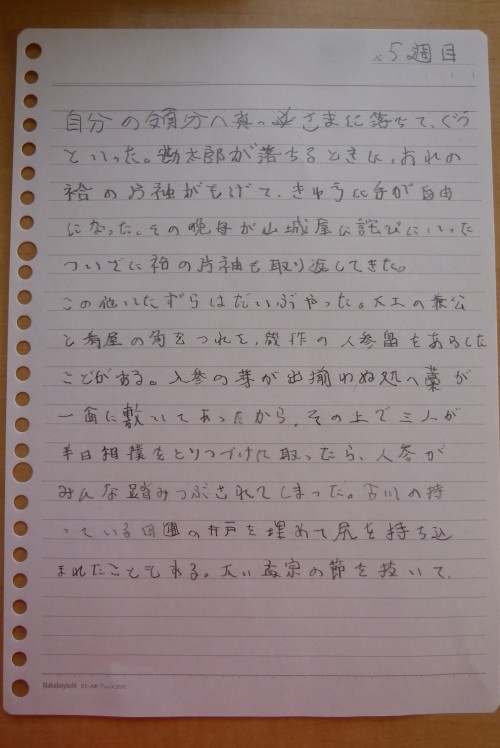 5週目
自分の領分へ真っ逆さまに落ちて、ぐう
といった。勘太郎が落ちるときに、おれの
袷の片袖がもげて、きゅうに手が自由
になった。その晩母が山城屋に詫びにいった
ついでに袷の片袖も取り返してきた。
この他いたずらはだいぶやった。大工の兼公
と肴屋の角をつれて、茂作の人参畠をあらした
ことがある。人参の芽が出揃わぬ処へ藁が
一面に敷いてあったから、その上で三人が
半日相撲をとりつづけに取ったら、人参が
みんな踏みつぶされてしまった。古川の持
っている田圃の井戸を埋めて尻を持ち込
まれたこともある。太い孟宗の節を抜いて、
Nakabayashi